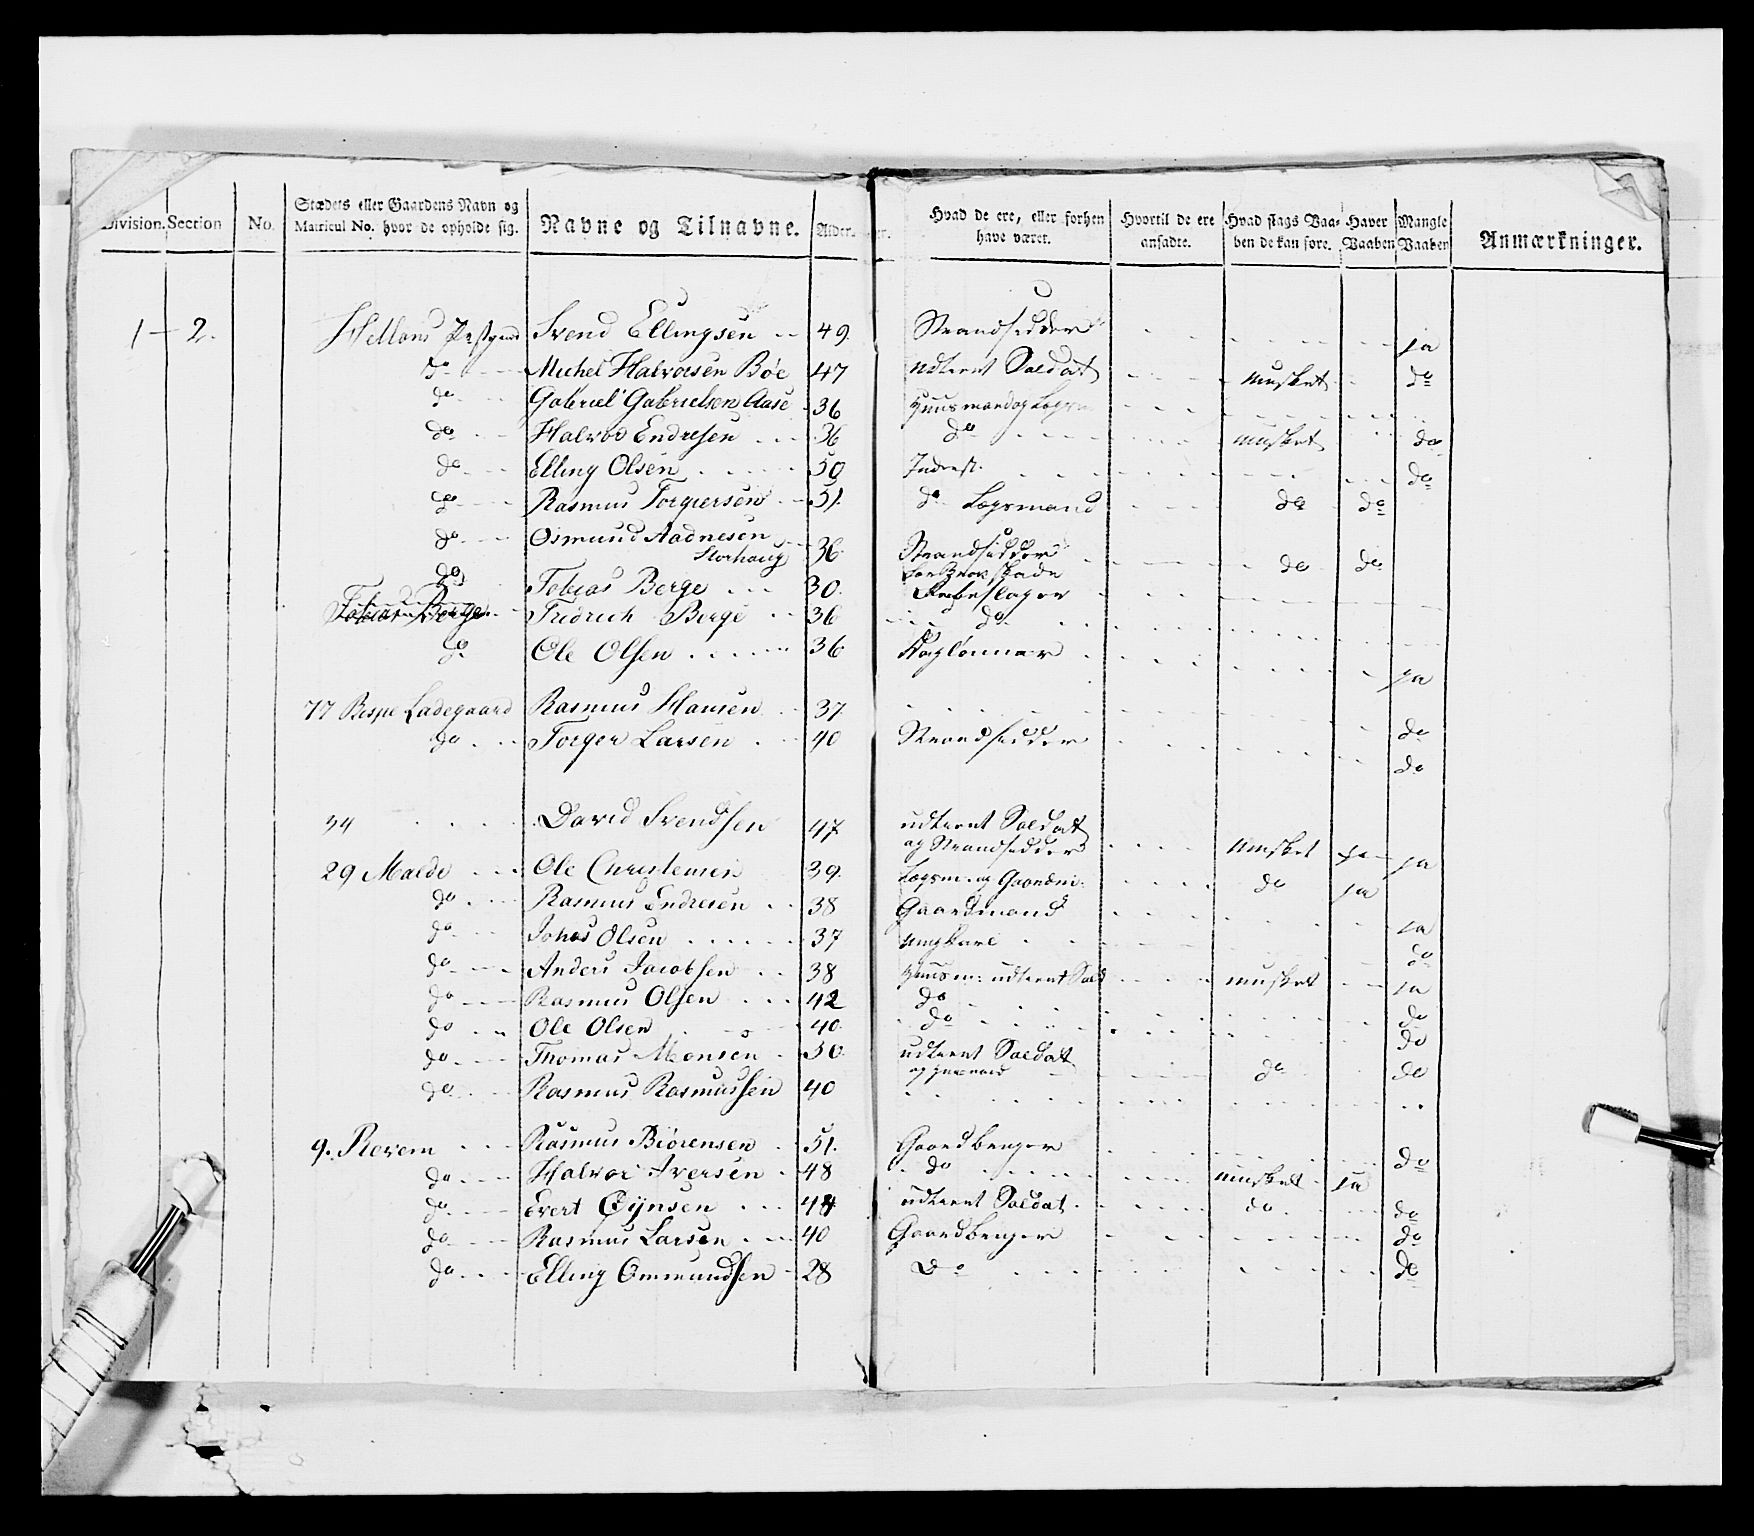 Division. Section No. Stædets eller Gaardens Navn og Matricul No. hvor de opholde sig. Navne og Tilnavne. Alder. Hvad de ere, eller forhen have været. Hvortil de ere ansadte. Hvad slags Vaaben de kan føre. Haver Vaaben Mangle Vaaben Anmærkninger.
1 - 2. Svend Ellingsen 49. Strandsidder ja
do Michel Halvorsen Bøe 47 udtient Soldat musket do
do Gabriel Gabrielsen Aase 36 Huusmand og
do Halvor Endresen 36 do musket do
do Elling Olsen 50 Inderst. do
do Rasmus Torgiersen 51. do Lægsmand do do
do Osmund Aadnesen Storhaug 36. Strandsidder do do
do Tobias Berge 30.
Tobias Berge Fridrich Berge 36 do
do Ole Olsen 36 Daglønner ja
77 Bispe Ladegaard Rasmus Hansen 37. do
do Torger Larsen 40 Strandsidder do
34 David Svendsen 47 udtient Soldat og Strandsidder musket ja
29 Malde Ole Christensen 39. Lægsm. og Gaardm. do ja
do Rasmus Endresen 38 Gaardmand ja
do Johas Olsen 37 ungkarl do
do Anders Jacobsen 38 Huusm: udtient Sold musket ja
do Rasmus Olsen 42 do do
do Ole Olsen 40. do do
do Thomas Monsen 50. udtient Soldat do do
do Rasmus Rasmussen 40
9. Revem Rasmus Biørensen 51. Gaardbruger do
do Halvor Iversen 48 do musket ja
do Evert Øÿnsen 44 udtient Soldat do do
do Rasmus Larsen 40 Gaardbruger do
do Elling Ommundsen 28 Do do